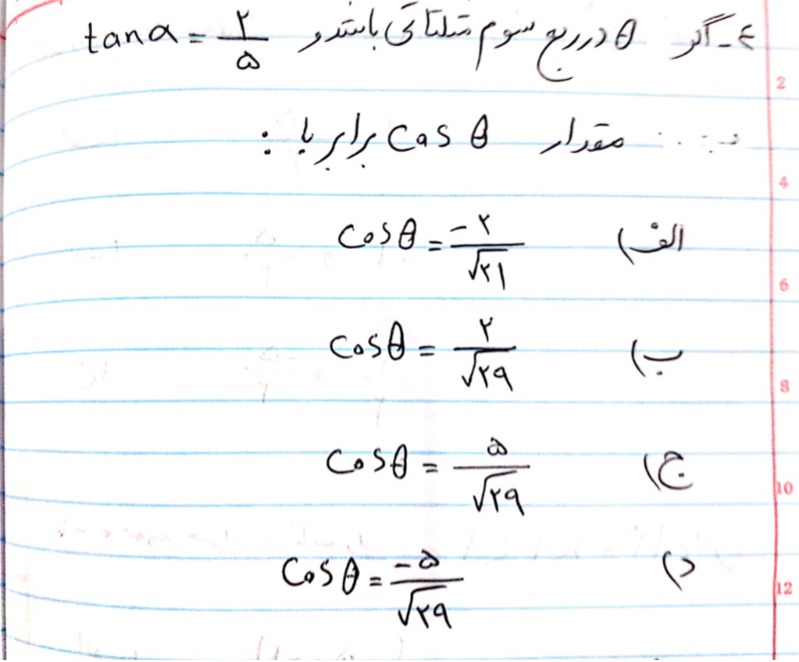 ٤- گر θ در ربع سوم مثلثاتی باشد و tan α = ٢/۵
مقدار cos θ برابر با :
الف) cos θ = -٢/√٢١
ب) cos θ = ٢/√٢٩
ج) cos θ = ۵/√٢٩
د) cos θ = -۵/√٢٩
2
4
6
8
10
12